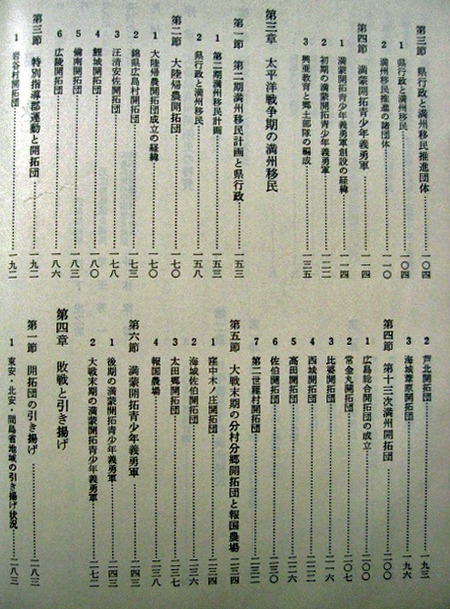 第三節 県行政と満州移民推進団体…………一〇四
1 県行政と満州移民…………一〇四
2 満州移民推進の諸団体…………一〇六
第四節 満蒙開拓青少年義勇軍…………一一四
1 満蒙開拓青少年義勇軍創設の経緯…………一一四
2 初期の満蒙開拓青少年義勇軍…………一二二
3 興亜教育と郷土部隊の編成…………一三五
第三章 太平洋戦争期の満州移民
第一節 第二期満州移民計画と県行政…………一五三
1 第二期満州移民計画…………一五三
2 県行政と満州移民…………一五八
第二節 大陸帰農開拓団…………一七〇
1 大陸帰農開拓団成立の経緯…………一七〇
2 錦県広島村開拓団…………一七三
3 汪清安佐開拓団…………一七八
4 鯉城開拓団…………一八〇
5 備南開拓団…………一八三
6 広陵開拓団…………一八六
第三節 特別指導郡運動と開拓団…………一九二
1 岩谷村開拓団…………一九二
2 芦北開拓団…………一九三
3 海城葦原開拓団…………一九六
第四節 第十三次満州開拓団…………二〇〇
1 広島総合開拓団の成立…………二〇〇
2 常金丸開拓団…………二〇七
3 比婆開拓団…………二一六
4 西城開拓団…………二二二
5 高田開拓団…………二二六
6 佐伯開拓団…………二三〇
7 第二世羅村開拓団…………二三二
第五節 大戦末期の分村分郷開拓団と報国農場…………二三四
1 窪中木ノ庄開拓団…………二三四
2 海城佐伯開拓団…………二三六
3 太田郷開拓団…………二三七
4 報国農場…………二三八
第六節 満蒙開拓青少年義勇軍…………二四三
1 後期の満蒙開拓青少年義勇軍…………二四三
2 大戦末期の満蒙開拓青少年義勇軍…………二七二
第四章 敗戦と引き揚げ
第一節 開拓団の引き揚げ…………二八三
1 東安・北安・間島省地域の引き揚げ状況…………二八三